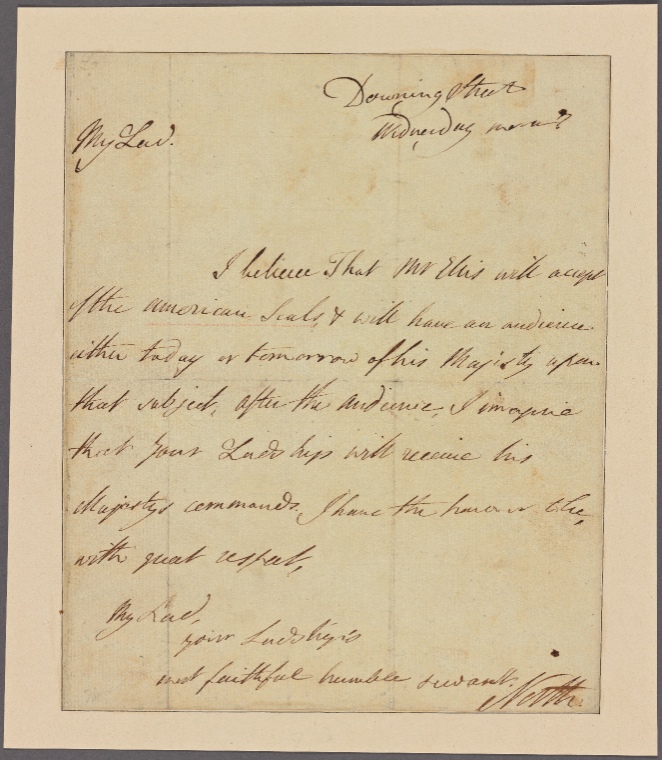 Downing Street
Wednesday morning
My Lord.
I believe That Mr Ellis will accept
of the american Seals, & will have an audience
either today or tomorrow of his Majesty upon
that subject, after the audience, I imagine
that your Lordship will receive his
Majestys commands. I have the honour to be,
with great respect,
My Lord,
your Lordship's
most faithful humble servant.
North